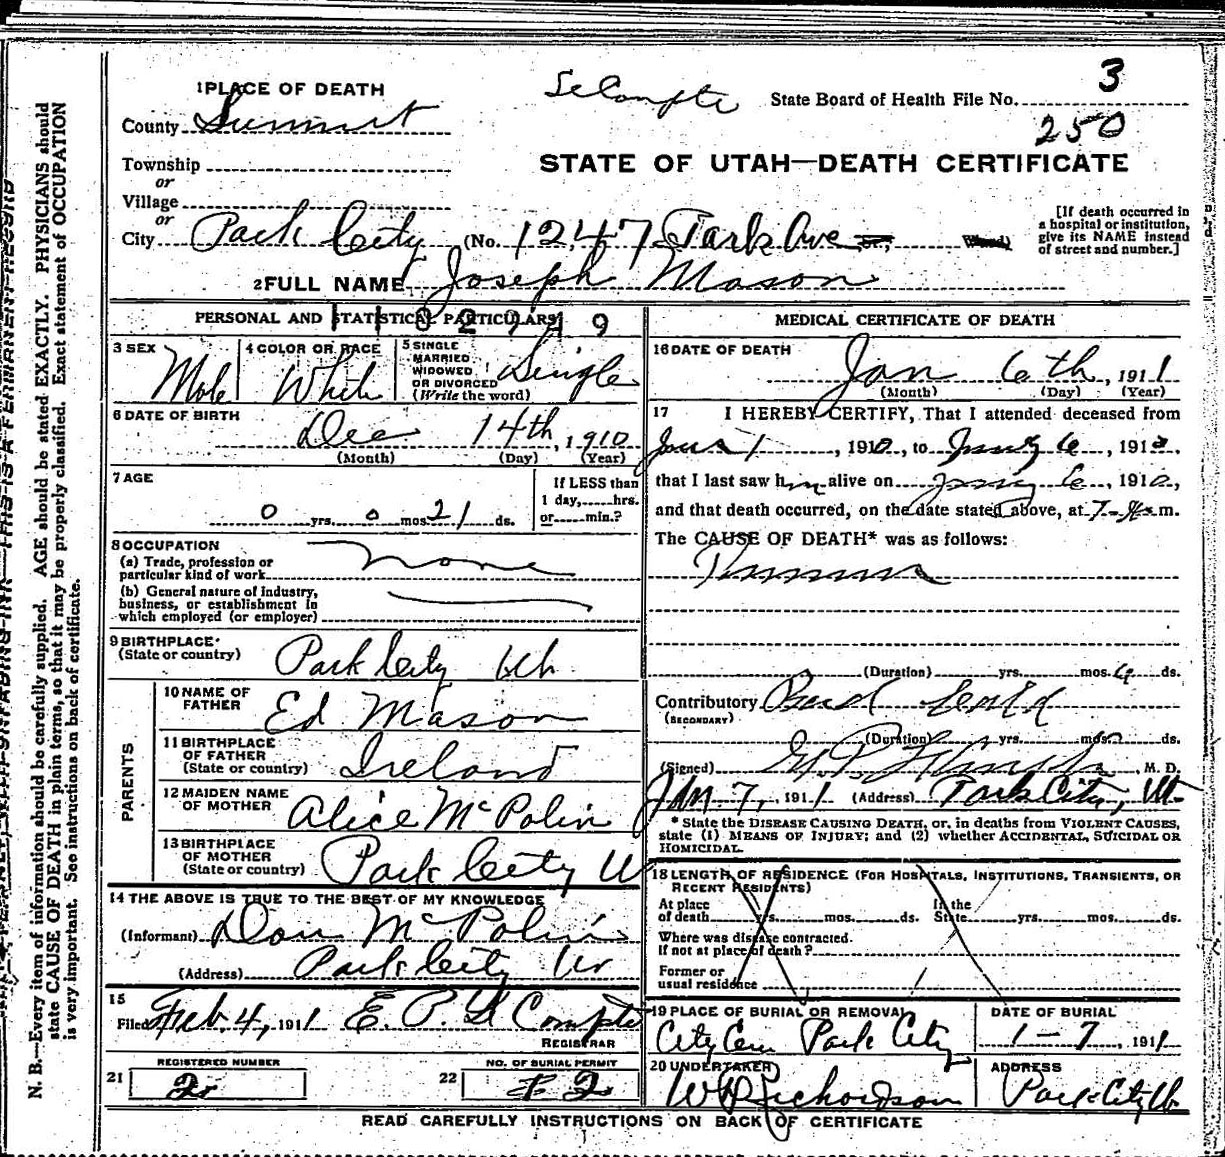 1 PLACE OF DEATH
LeCompte State Board of Health File No. 3
County Summit 250
Township
or
STATE OF UTAH—DEATH CERTIFICATE
Village
or
City Park City (No. 1247 Park Ave
[If death occurred in
a hospital or institution,
give its NAME instead
of street and number.]
2 FULL NAME Joseph Mason
PERSONAL AND STATISTICAL PARTICULARS
3 SEX Male
4 COLOR OR RACE White
5 SINGLE
MARRIED
WIDOWED
OR DIVORCED
(Write the word) Single
6 DATE OF BIRTH
Dec 14th, 1910
(Month) (Day) (Year)
7 AGE
0 yrs. 0 mos. 21 ds.
If LESS than
1 day,......hrs.
or......min.?
8 OCCUPATION
(a) Trade, profession or
particular kind of work none
(b) General nature of industry,
business, or establishment in
which employed (or employer)
9 BIRTHPLACE
(State or country) Park City Uth
PARENTS
10 NAME OF
FATHER Ed Mason
11 BIRTHPLACE
OF FATHER
(State or country) Ireland
12 MAIDEN NAME
OF MOTHER Alice McPolin
13 BIRTHPLACE
OF MOTHER
(State or country) Park City U
14 THE ABOVE IS TRUE TO THE BEST OF MY KNOWLEDGE
(Informant) Dan McPolin
(Address) Park City Ut
15
Filed Feb. 4, 1911 E. P. Le Compte
REGISTRAR
REGISTERED NUMBER
21 2
NO. OF BURIAL PERMIT
22 2
MEDICAL CERTIFICATE OF DEATH
16 DATE OF DEATH
Jan 6th, 1911
(Month) (Day) (Year)
17 I HEREBY CERTIFY, That I attended deceased from
Jan 1, 1910, to Jany 6, 1910,
that I last saw him alive on Jany 6, 1910,
and that death occurred, on the date stated above, at 7 m.
The CAUSE OF DEATH* was as follows:
(Duration) yrs. mos. ds.
Contributory
(SECONDARY)
(Duration) yrs. mos. ds.
(Signed) M. D.
Jan 7, 1911 (Address) Park City, Ut
* State the DISEASE CAUSING DEATH, or, in deaths from VIOLENT CAUSES,
state (1) MEANS OF INJURY; and (2) whether ACCIDENTAL, SUICIDAL OR
HOMICIDAL.
18 LENGTH OF RESIDENCE (FOR HOSPITALS, INSTITUTIONS, TRANSIENTS, OR
RECENT RESIDENTS)
At place
of death yrs. mos. ds. In the
State yrs. mos. ds.
Where was disease contracted.
If not at place of death?
Former or
usual residence
19 PLACE OF BURIAL OR REMOVAL
City Cem Park City
DATE OF BURIAL
1-7, 1911
20 UNDERTAKER
W Richardson
ADDRESS
Park City Ut
READ CAREFULLY INSTRUCTIONS ON BACK OF CERTIFICATE
N. B.—Every item of information should be carefully supplied. AGE should be stated EXACTLY. PHYSICIANS should
state CAUSE OF DEATH in plain terms, so that it may be properly classified. Exact statement of OCCUPATION
is very important. See instructions on back of certificate.